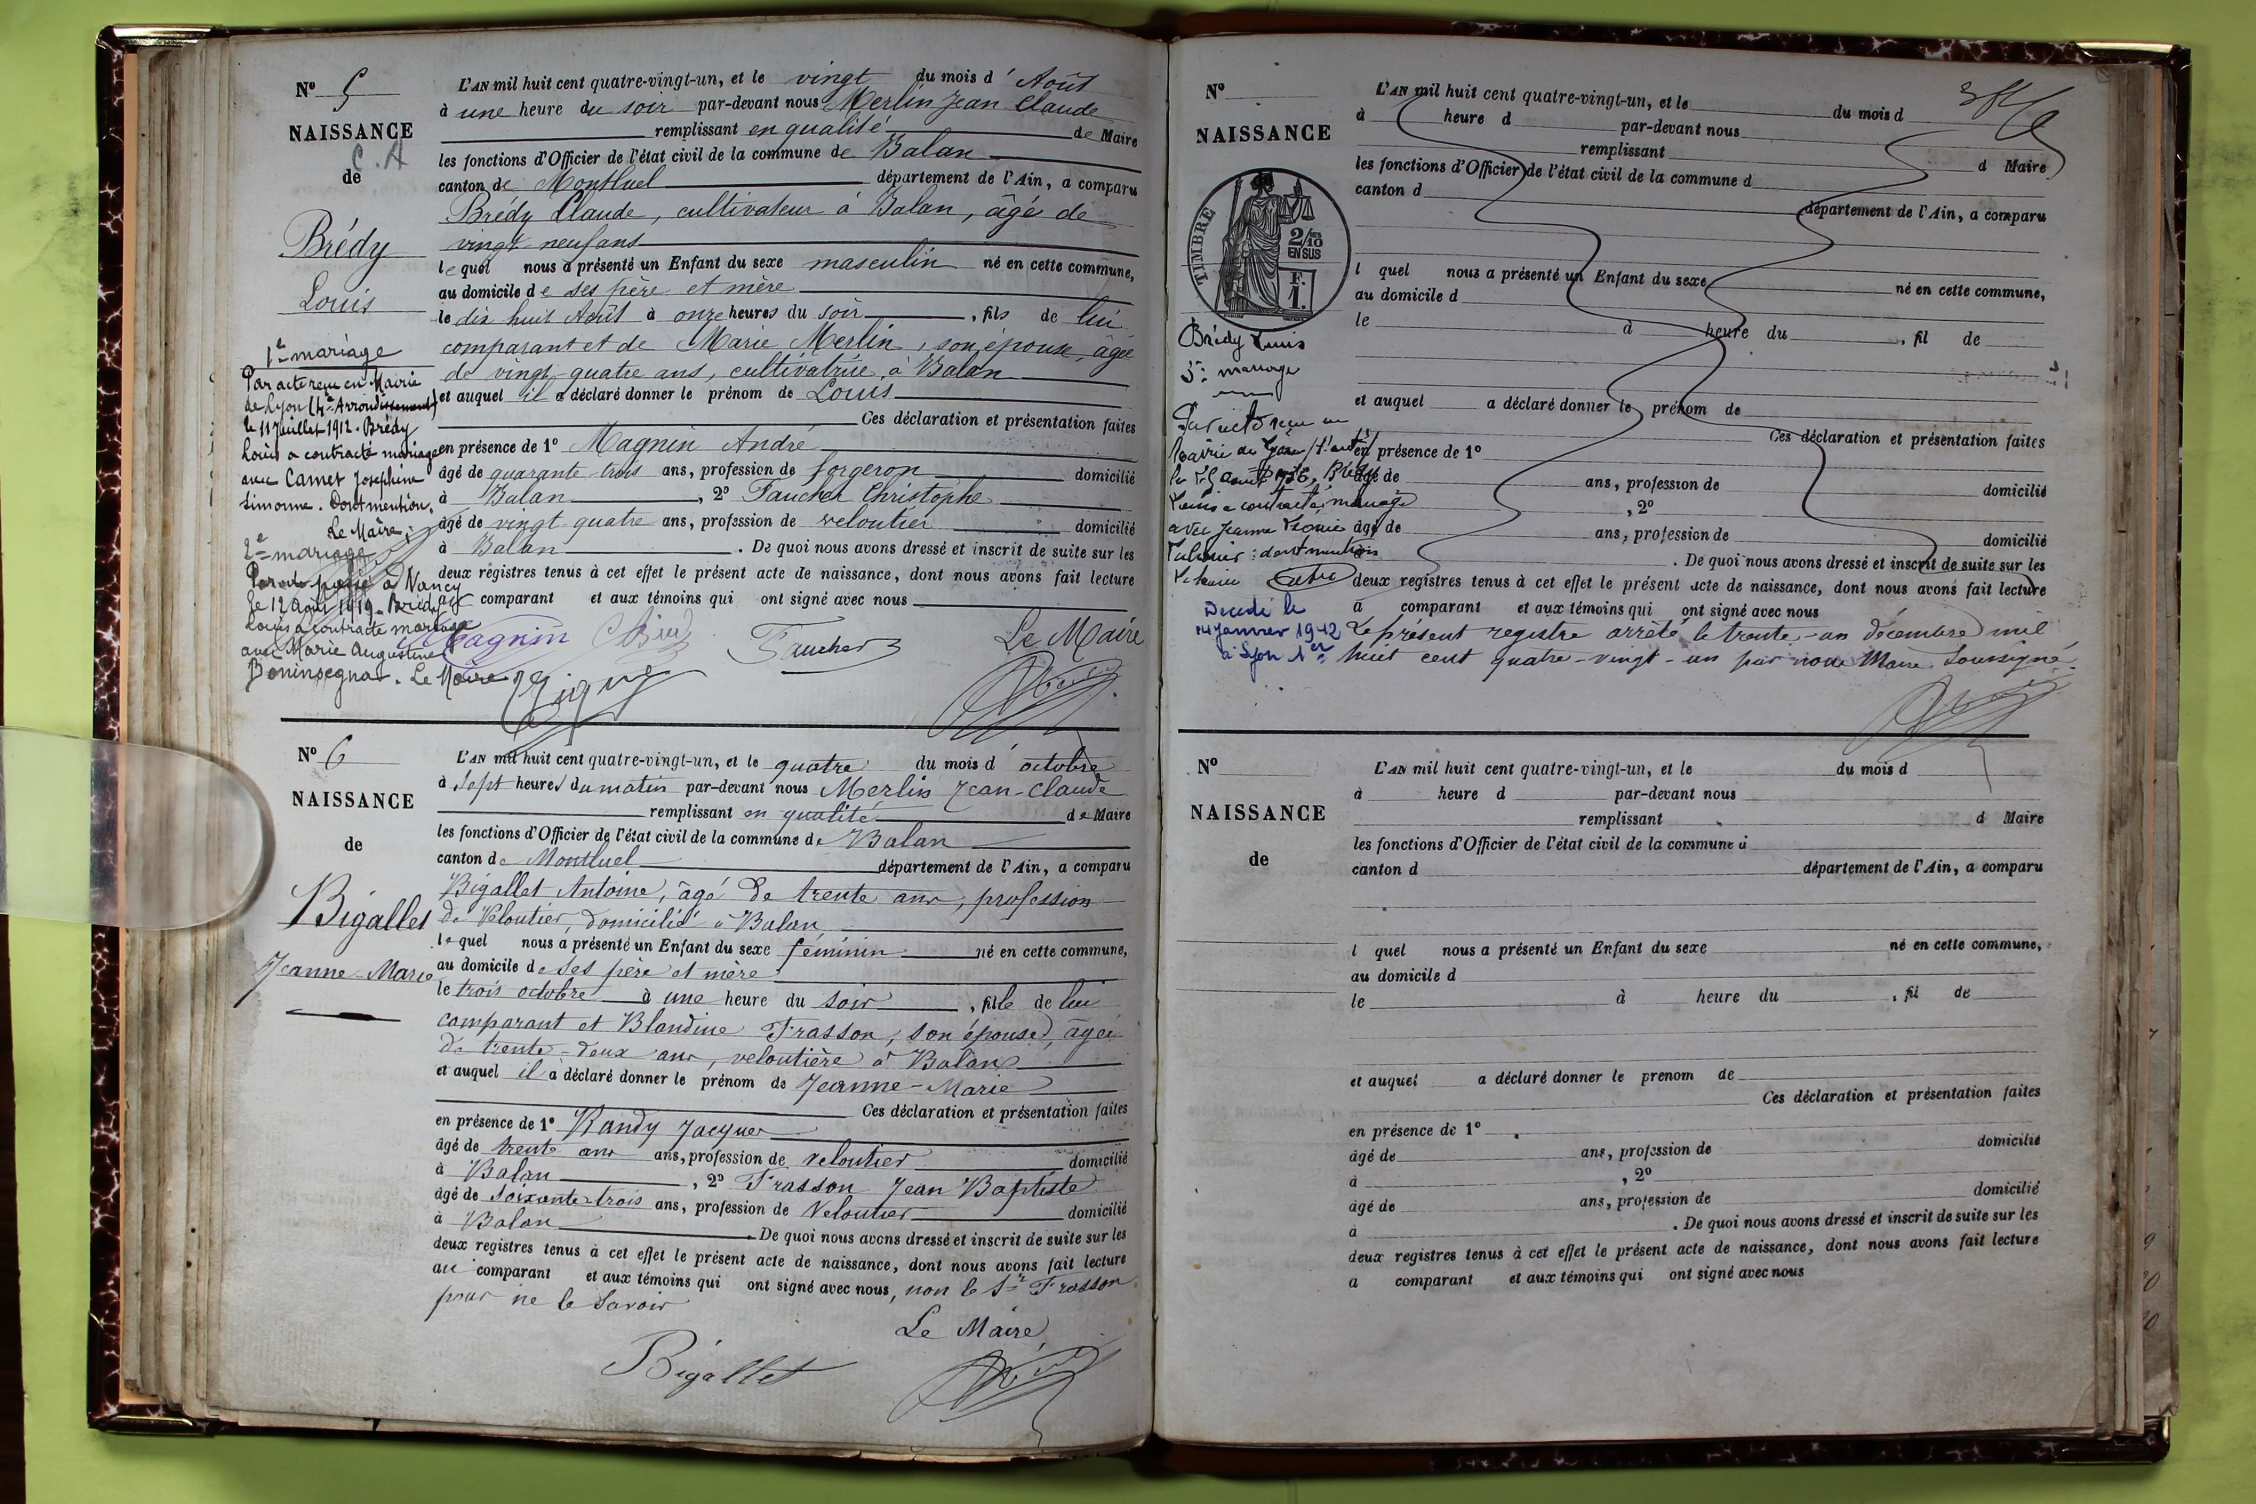 N° 5
NAISSANCE
C. A
de
Brédy
Louis
1er mariage
Par acte reçu en Mairie
de Lyon (4e Arrondissement)
le 11 Juillet 1912. Brédy
Louis a contracté mariage
avec Camet Joséphine
Simonne. Dont mention.
Le Maire,
2e mariage
à Nancy
le 12 août 1919. Brédy
Louis a contracté mariage
avec Marie Augustine
Boninsegna. Le Maire
L'AN mil huit cent quatre-vingt-un, et le vingt du mois d'Août
à une heure du soir par-devant nous Merlin Jean Claude
remplissant en qualité de Maire
les fonctions d'Officier de l'état civil de la commune de Balan
canton de Montluel département de l'Ain, a comparu
Brédy Claude, cultivateur à Balan, âgé de
vingt neuf ans
lequel nous a présenté un Enfant du sexe masculin né en cette commune,
au domicile de ses père et mère
le dix huit Août à onze heures du soir, fils de lui
comparant et de Marie Merlin, son épouse, âgée
de vingt-quatre ans, cultivatrice à Balan
et auquel il a déclaré donner le prénom de Louis
Ces déclaration et présentation faites
en présence de 1° Magnin André
âgé de quarante-trois ans, profession de forgeron domicilié
à Balan, 2° Faucher Christophe
âgé de vingt quatre ans, profession de veloutier domicilié
à Balan. De quoi nous avons dressé et inscrit de suite sur les
deux registres tenus à cet effet le présent acte de naissance, dont nous avons fait lecture
au comparant et aux témoins qui ont signé avec nous
Magnin Faucher Le Maire
N° 6
NAISSANCE
de
Bigallet
Jeanne-Marie
L'AN mil huit cent quatre-vingt-un, et le quatre du mois d'octobre
à sept heures du matin par-devant nous Merlin Jean-Claude
remplissant en qualité de Maire
les fonctions d'Officier de l'état civil de la commune de Balan
canton de Montluel département de l'Ain, a comparu
Bigallet Antoine, âgé de trente ans, profession
de Veloutier, domicilié à Balan
lequel nous a présenté un Enfant du sexe féminin né en cette commune,
au domicile de ses père et mère
le trois octobre à une heure du soir, fille de lui
comparant et Blandine Frasson, son épouse, âgée
de trente-deux ans, veloutière à Balan
et auquel il a déclaré donner le prénom de Jeanne-Marie
Ces déclaration et présentation faites
en présence de 1° Randy Jacques
âgé de trente ans ans, profession de veloutier domicilié
à Balan, 2° Frasson Jean Baptiste
âgé de soixante-trois ans, profession de Veloutier domicilié
à Balan. De quoi nous avons dressé et inscrit de suite sur les
deux registres tenus à cet effet le présent acte de naissance, dont nous avons fait lecture
au comparant et aux témoins qui ont signé avec nous, non le Sr Frasson
pour ne le savoir
Le Maire
Bigallet
N°
NAISSANCE
TIMBRE
2/10
EN SUS
F.
1.
Brédy Louis
3e mariage
Par acte reçu en
Louis a contracté mariage
avec Jeanne
dont mention
Décédé le
14 Janvier 1942
à Lyon 1er
L'AN mil huit cent quatre-vingt-un, et le du mois d
à heure d par-devant nous
remplissant d Maire
les fonctions d'Officier de l'état civil de la commune d
canton d département de l'Ain, a comparu
l quel nous a présenté un Enfant du sexe né en cette commune,
au domicile d
le à heure du, fil de
et auquel a déclaré donner le prénom de
Ces déclaration et présentation faites
en présence de 1°
âgé de ans, profession de domicilié
, 2°
âgé de ans, profession de domicilié
. De quoi nous avons dressé et inscrit de suite sur les
deux registres tenus à cet effet le présent acte de naissance, dont nous avons fait lecture
a comparant et aux témoins qui ont signé avec nous
Le présent registre arrêté le trente-un décembre mil
huit cent quatre-vingt-un par nous Maire soussigné
N°
NAISSANCE
de
L'AN mil huit cent quatre-vingt-un, et le du mois d
à heure d par-devant nous
remplissant d Maire
les fonctions d'Officier de l'état civil de la commune d
canton d département de l'Ain, a comparu
l quel nous a présenté un Enfant du sexe né en cette commune,
au domicile d
le à heure du, fil de
et auquel a déclaré donner le prenom de
Ces déclaration et présentation faites
en présence de 1°
âgé de ans, profession de domicilié
à, 2°
âgé de ans, profession de domicilié
à. De quoi nous avons dressé et inscrit de suite sur les
deux registres tenus à cet effet le présent acte de naissance, dont nous avons fait lecture
a comparant et aux témoins qui ont signé avec nous